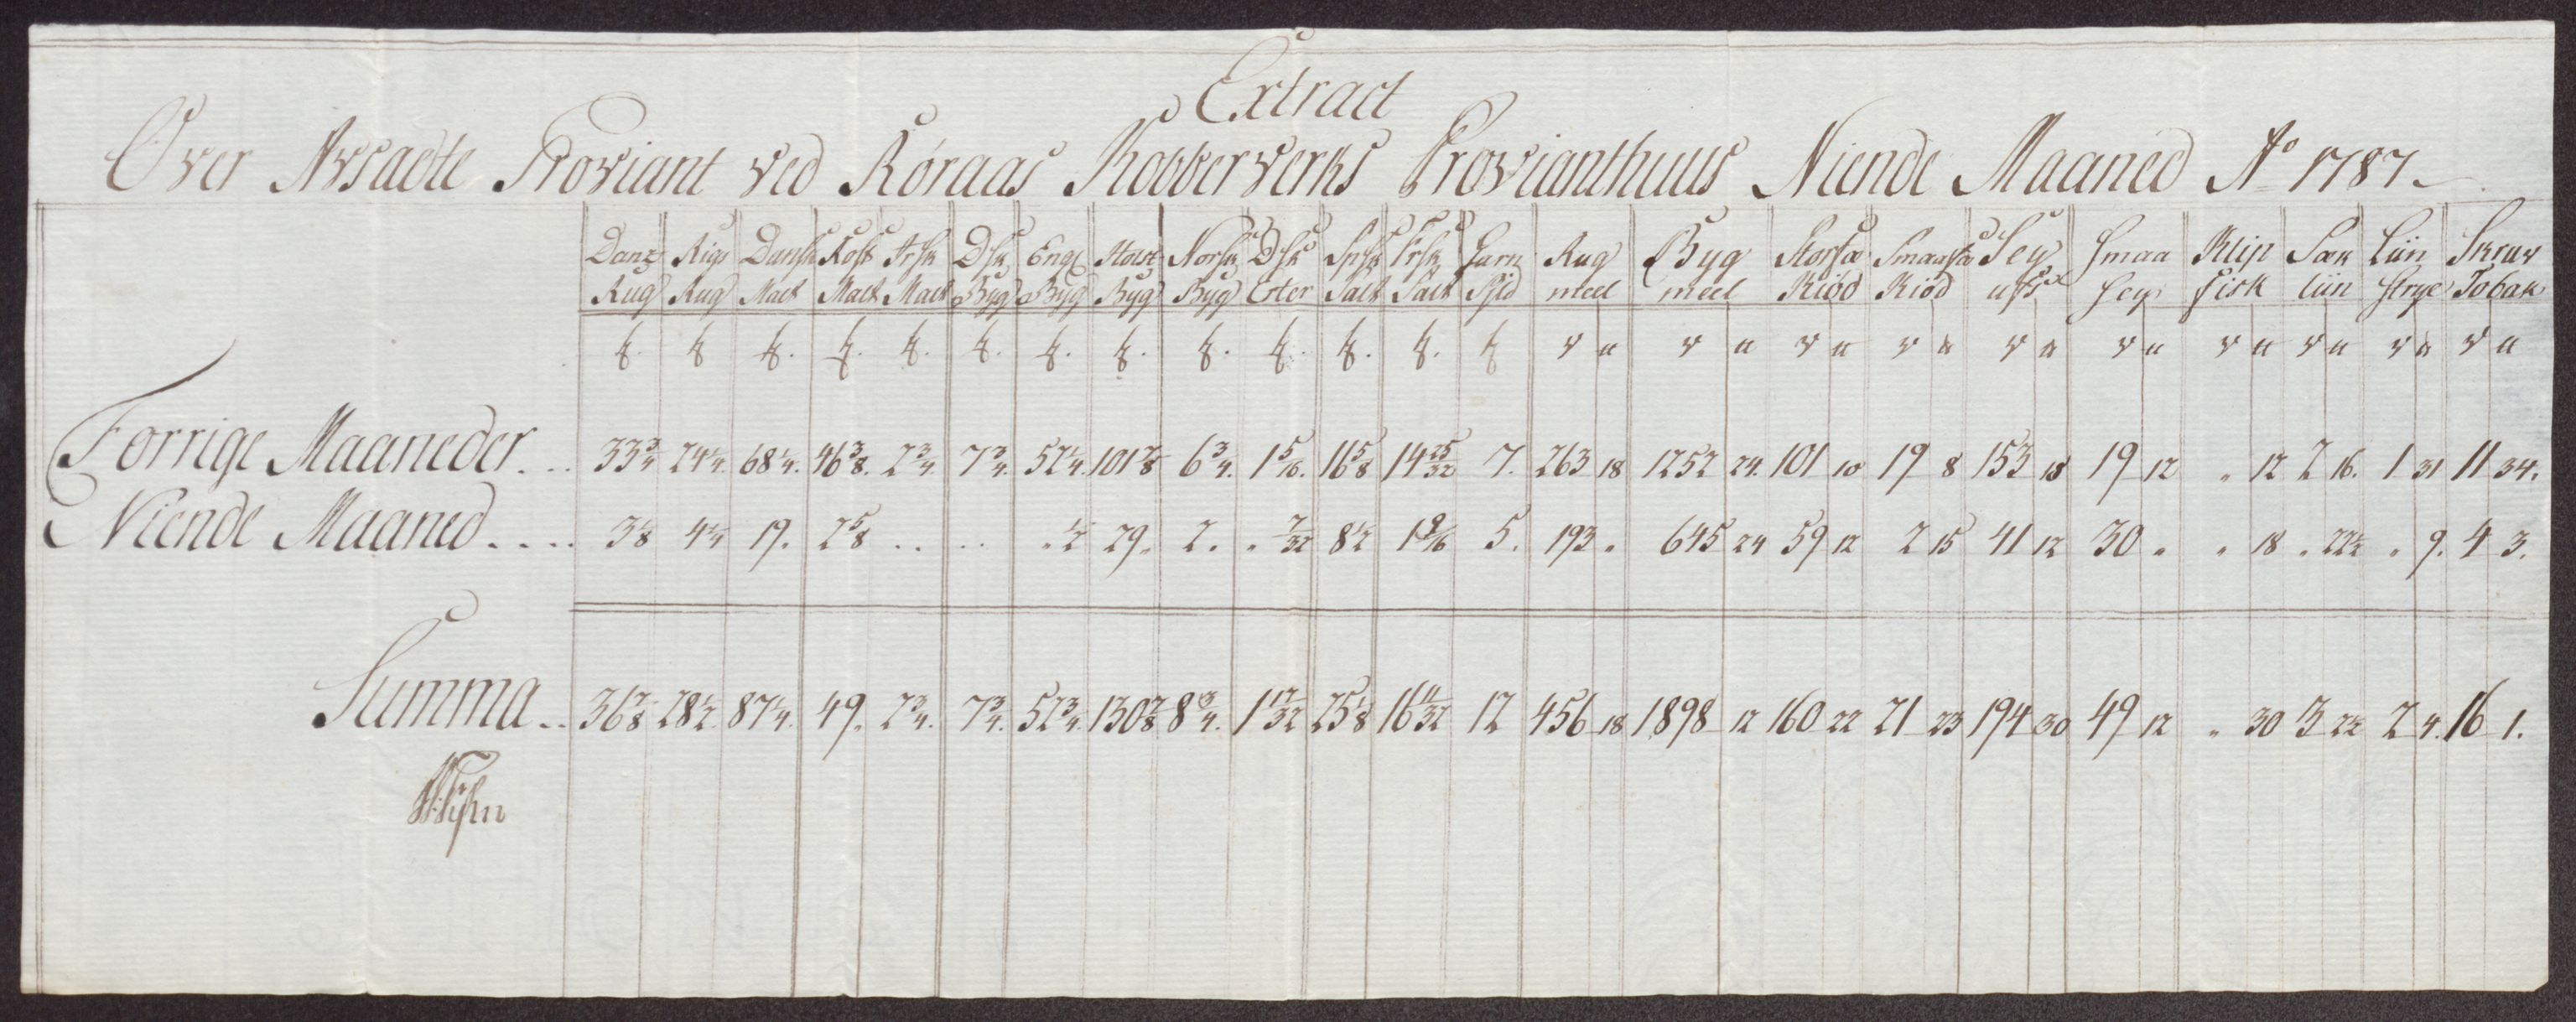 Extract
Over Avsadte Proviant ved Röraas Kobberverks Provianthuus Niende Maaned Aº 1787
Danz Rug | Riga Rug | Dansk Malt | Rost Malt | Irsk Malt | Dsk Byg | Engl Byg | Holst Byg | Norsk Byg | Dsk Erter | Spsk Salt | Frsk Salt | Garn Sild | Rug meel | Byg meel | Storfæ Kiöd | Smaafæ Kiöd | Sey | Smaa Sey | Klip fisk | Sæk liin | Liin Strye | Skruv Tobak
Forrige Maaneder ... 33 3/4 24 1/4 68 1/4 46 3/8 2 3/4 7 3/4 52 1/4 101 7/8 6 3/4 1 5/16 16 5/8 14 25/32 7 263 18 1252 24 101 10 19 8 153 18 19 12 " 12 2 16 1 31 11 34
Niende Maaned .... 3 1/8 4 1/4 19 2 5/8 .. .. " 1/2 29 2 " 7/32 8 1/2 1 9/16 5 193 " 645 24 59 12 2 15 41 12 30 " " 18 " 22 1/2 " 9 4 3
Summa .. 36 7/8 28 1/2 87 1/4 49 2 3/4 7 3/4 52 3/4 130 7/8 8 3/4 1 17/32 25 1/8 16 11/32 12 456 18 1898 12 160 22 21 23 194 30 49 12 " 30 3 2 1/2 2 4 16 1